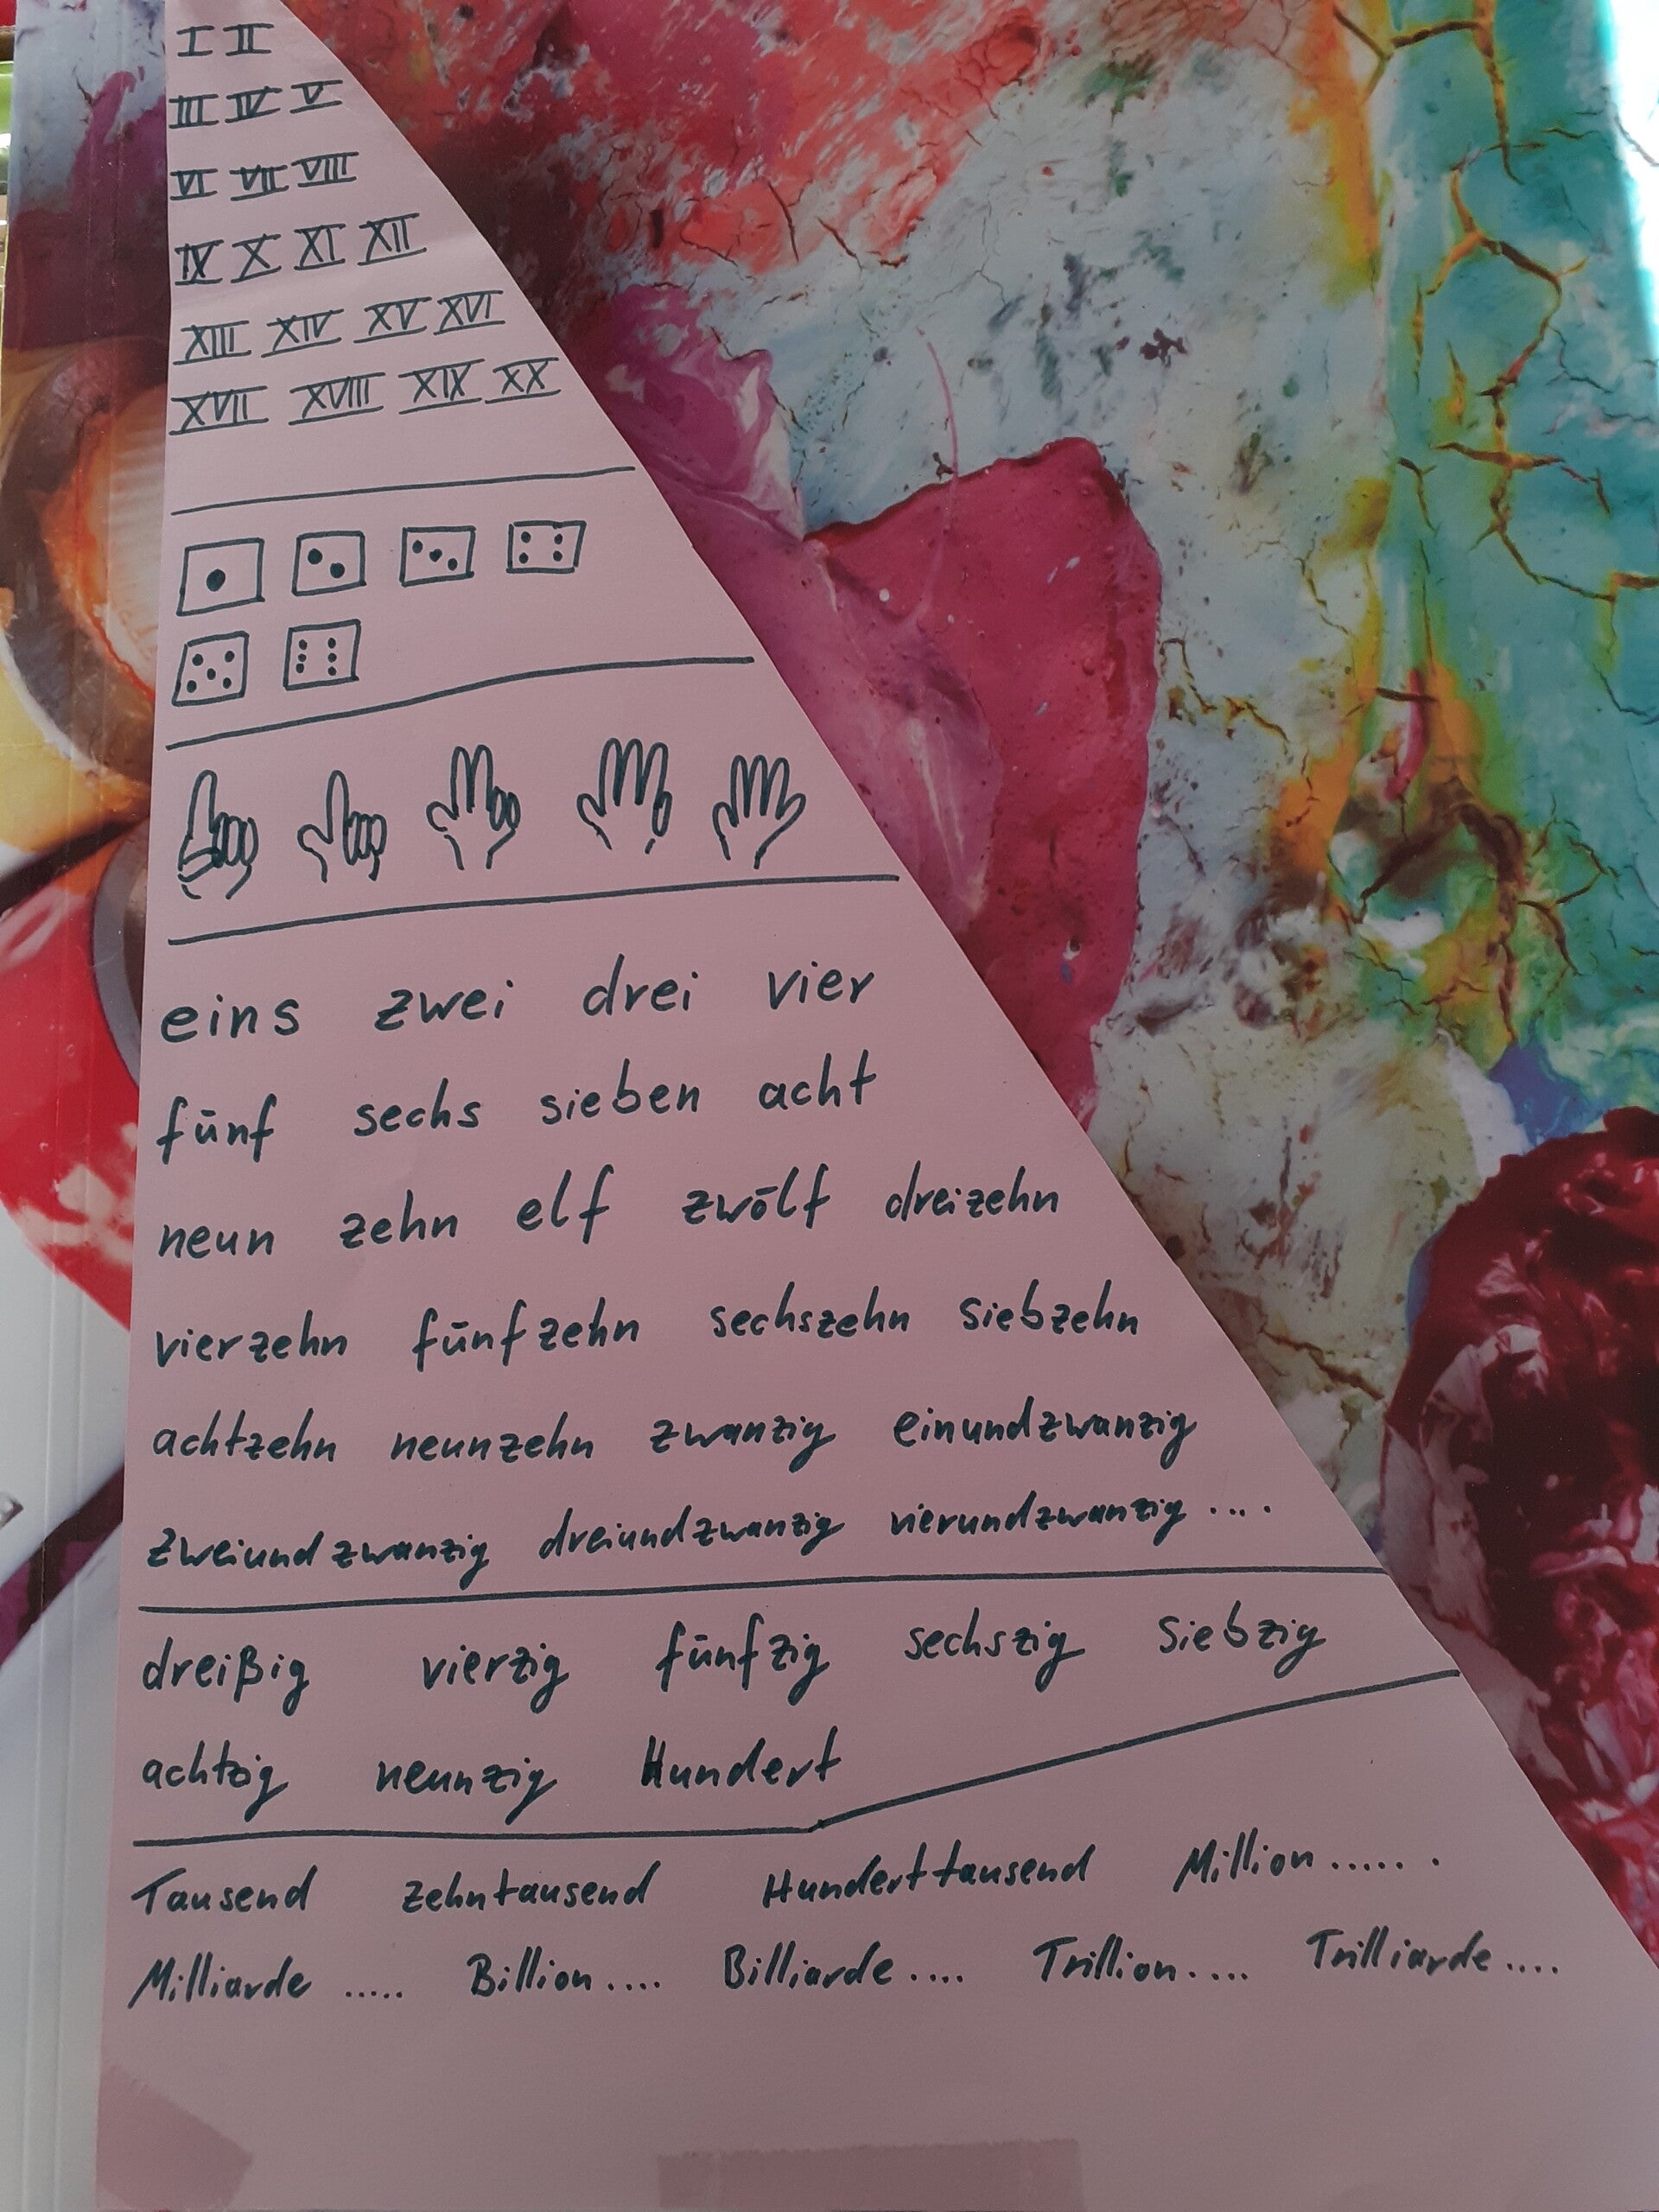 I II
III IV V
VI VII VIII
IX X XI XII
XIII XIV XV XVI
XVII XVIII XIX XX
eins zwei drei vier
fünf sechs sieben acht
neun zehn elf zwölf dreizehn
vierzehn fünfzehn sechszehn siebzehn
achtzehn neunzehn zwanzig einundzwanzig
zweiundzwanzig dreiundzwanzig vierundzwanzig ....
dreißig vierzig fünfzig sechszig siebzig
achtzig neunzig Hundert
Tausend zehntausend Hunderttausend Million ......
Milliarde ..... Billion .... Billiarde .... Trillion .... Trilliarde ....